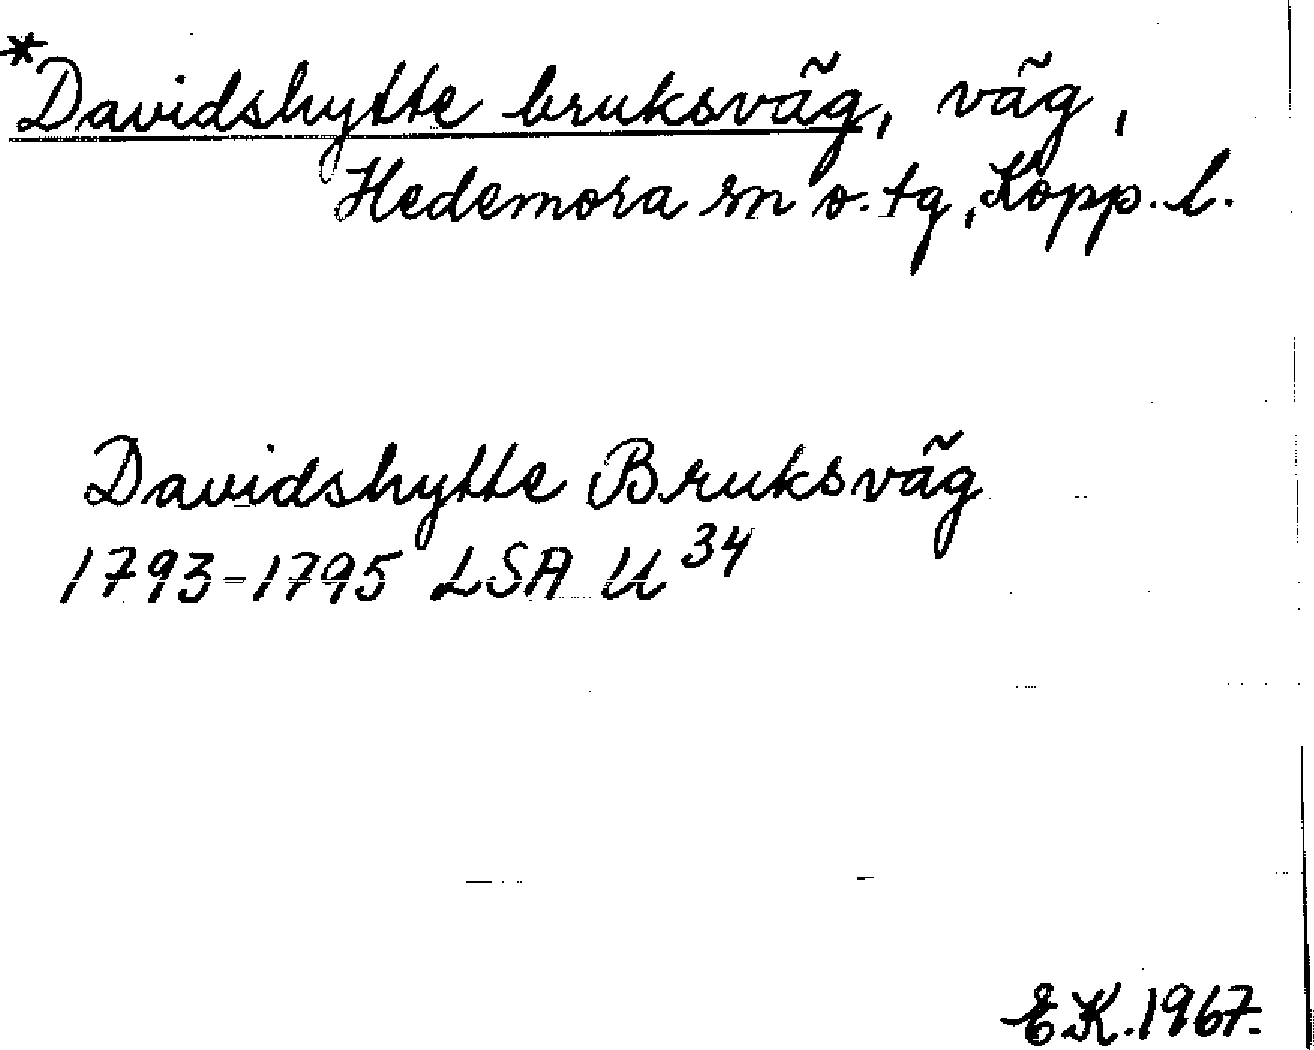 *Davidshytte bruksväg, väg,
Hedemora sn o. tg, Kopp. l.
Davidshytte Bruksväg
1793-1795 LSA U 34
E.K. 1967.